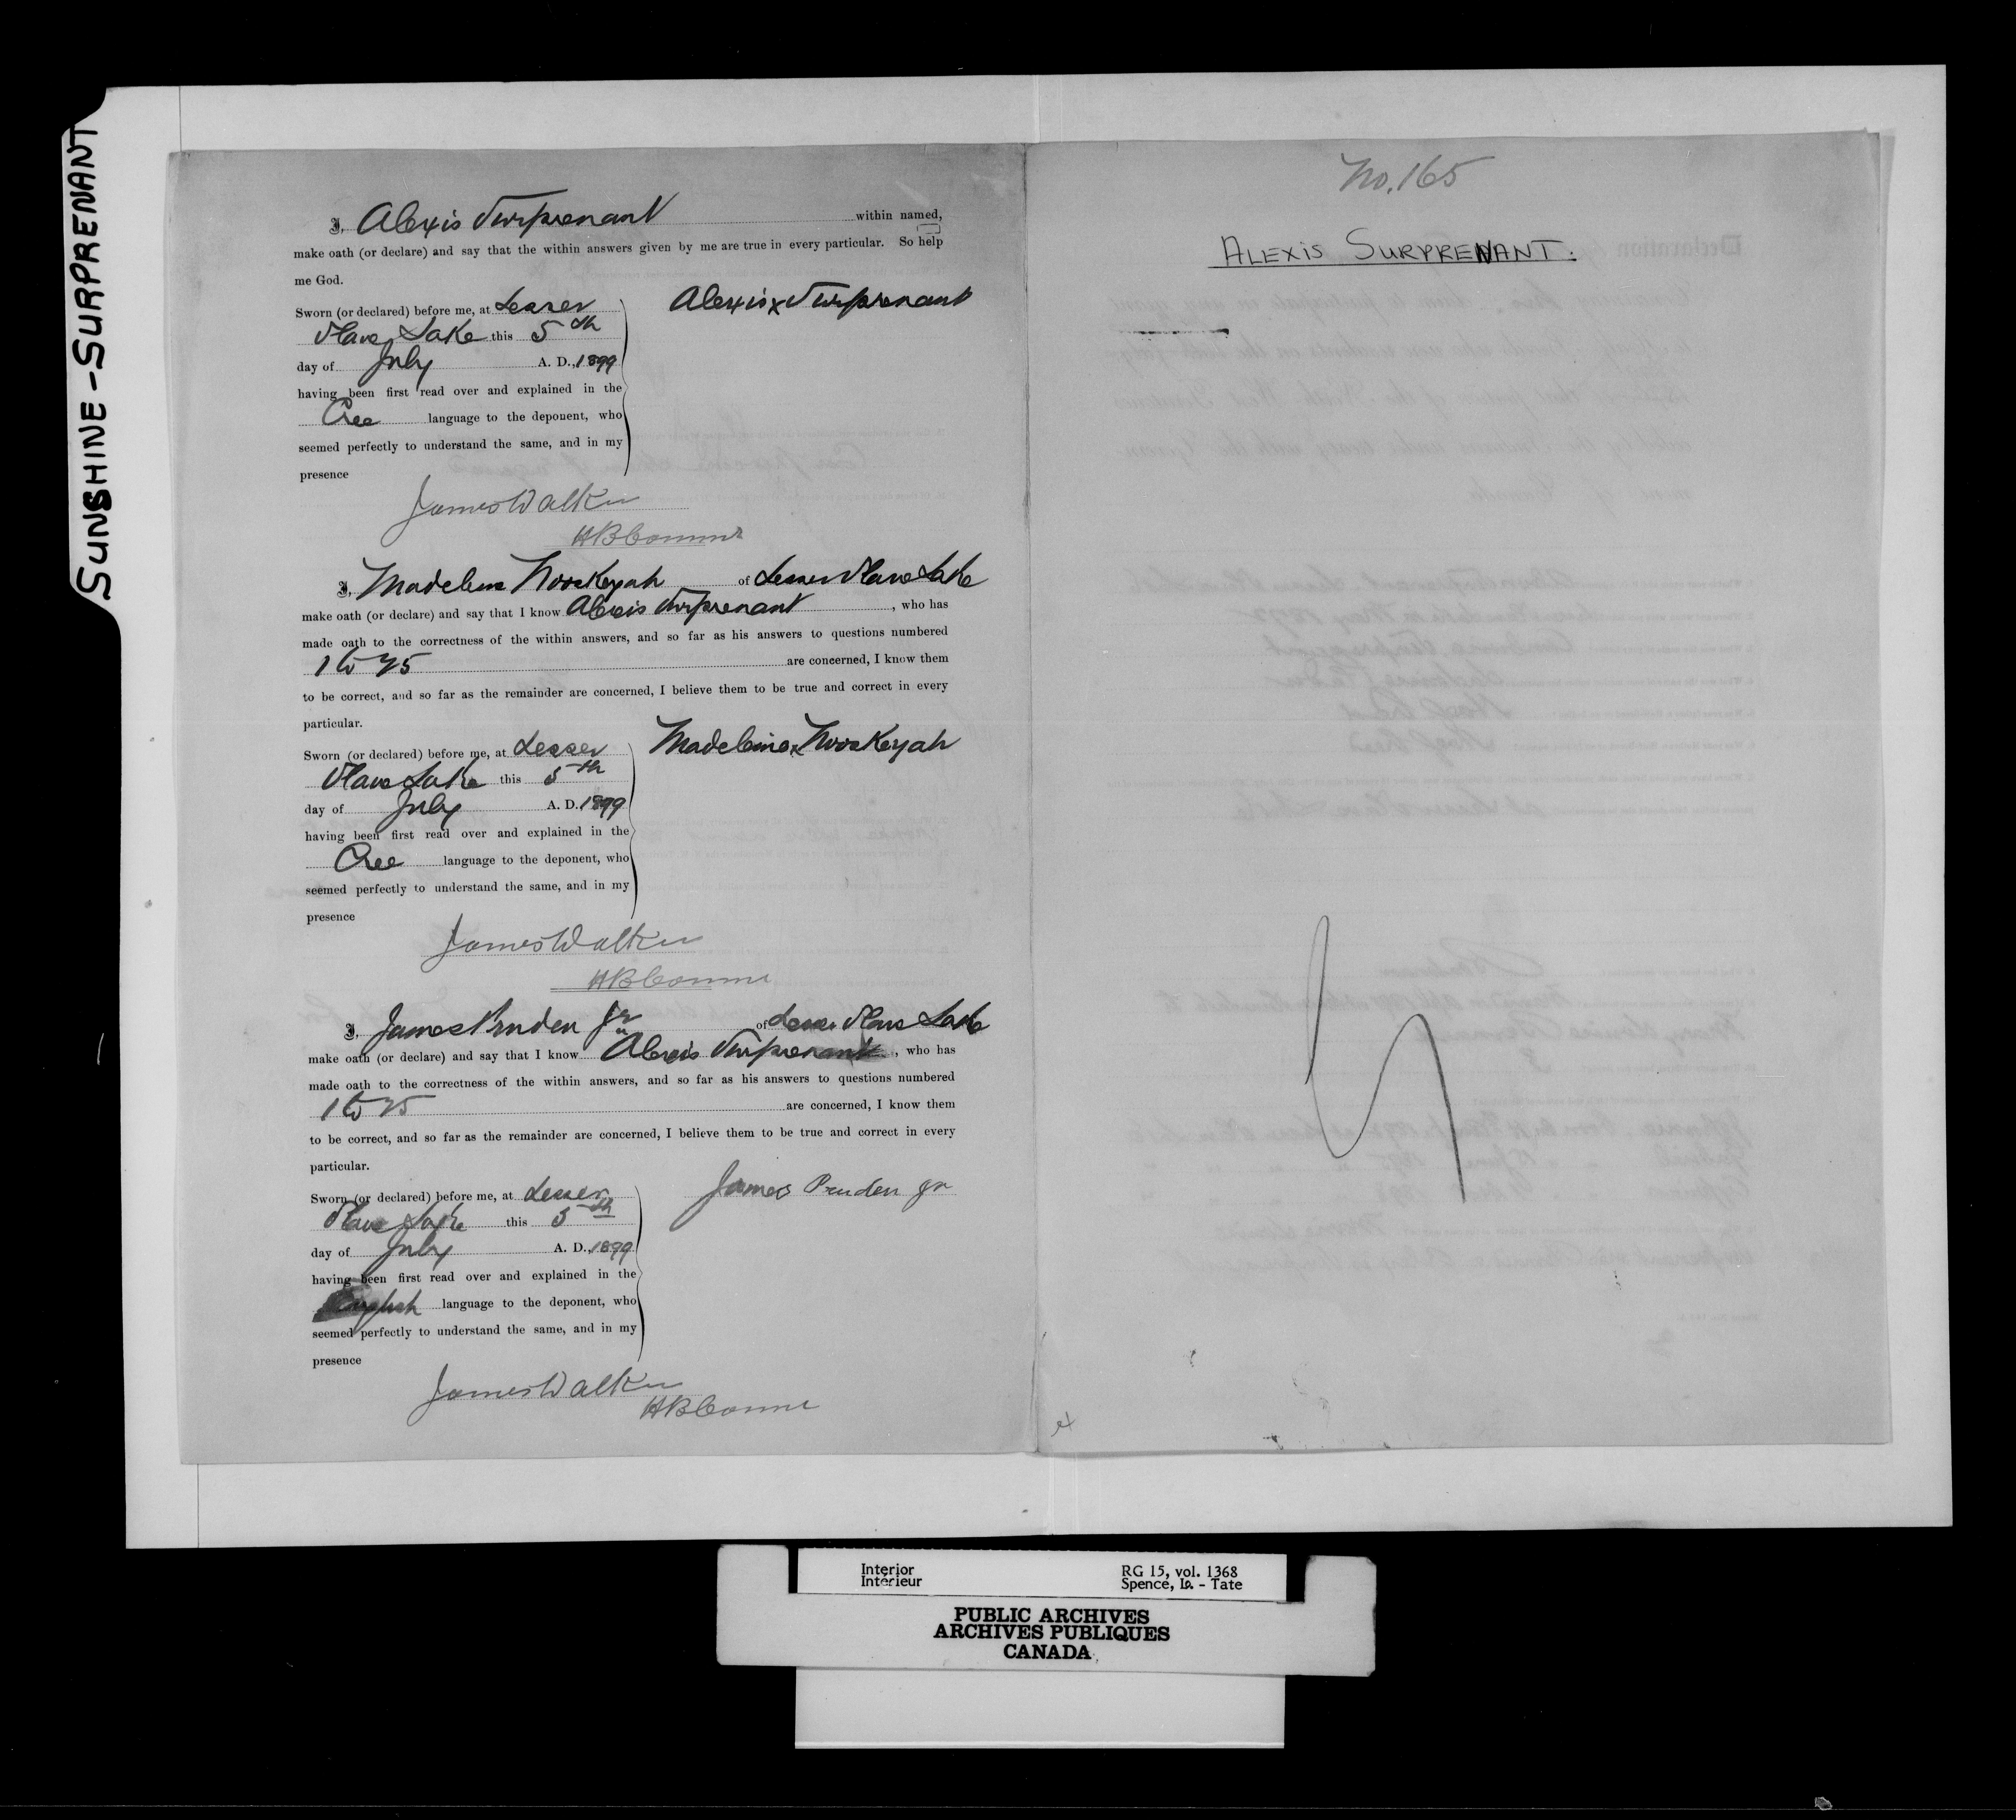 SUNSHINE-SURPRENANT
I, Alexis Surprenant within named,
make oath (or declare) and say that the within answers given by me are true in every particular. So help
me God.
Sworn (or declared) before me, at Lesser
Slave Lake this 5th
day of July A. D., 1899
having been first read over and explained in the
Cree language to the deponent, who
seemed perfectly to understand the same, and in my
presence
Alexis x Surprenant
James Walker
HB Commr
I, Madeleine Nooskeyah of Lesser Slave Lake
make oath (or declare) and say that I know Alexis Surprenant, who has
made oath to the correctness of the within answers, and so far as his answers to questions numbered
1 to 25 are concerned, I know them
to be correct, and so far as the remainder are concerned, I believe them to be true and correct in every
particular.
Sworn (or declared) before me, at Lesser
Slave Lake this 5th
day of July A. D. 1899
having been first read over and explained in the
Cree language to the deponent, who
seemed perfectly to understand the same, and in my
presence
Madeleine x Nooskeyah
James Walker
HB Commr
I, James Pruden Jr of Lesser Slave Lake
make oath (or declare) and say that I know Alexis Surprenant, who has
made oath to the correctness of the within answers, and so far as his answers to questions numbered
1 to 25 are concerned, I know them
to be correct, and so far as the remainder are concerned, I believe them to be true and correct in every
particular.
Sworn (or declared) before me, at Lesser
Slave Lake this 5th
day of July A. D., 1899
having been first read over and explained in the
English language to the deponent, who
seemed perfectly to understand the same, and in my
presence
James Pruden Jr
James Walker
HB Commr
No. 165
ALEXIS SURPRENANT.
Interior
Intérieur
RG 15, vol. 1368
Spence, Is. - Tate
PUBLIC ARCHIVES
ARCHIVES PUBLIQUES
CANADA